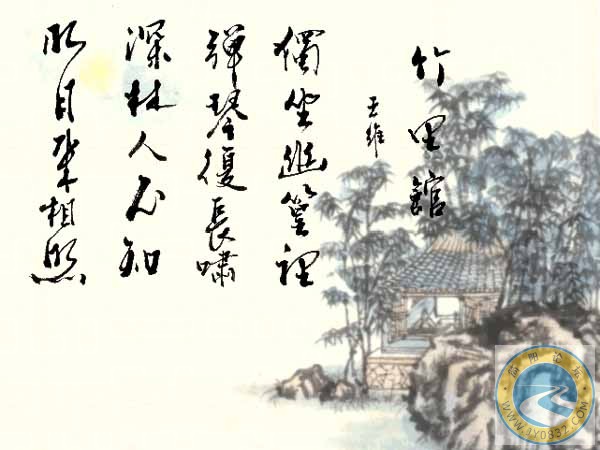 竹里館
王維
獨坐幽篁裡
彈琴復長嘯
深林人不知
明月來相照
益阳论坛
WWW.YY0832.COM